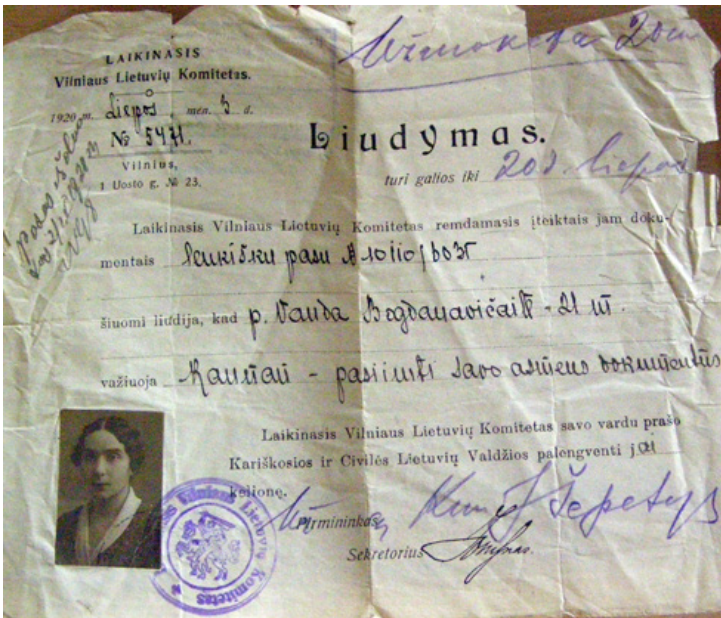 LAIKINASIS
Vilniaus Lietuvių Komitetas.
1920 m. Liepos mėn. 3 d.
№ 5471.
Vilnius,
Uosto g. № 23.
Užmokėta 20
Liudymas.
turi galios iki 20 d. liepos
Laikinasis Vilniaus Lietuvių Komitetas remdamasis įteiktais jam doku-
mentais lenkišku pasu №
šiuomi liudija, kad p. Vanda Bogdanavičaitė - 21 m.
važiuoja Kaunan - pasiimti savo asmens dokumentus
Laikinasis Vilniaus Lietuvių Komitetas savo vardu prašo
Kariškosios ir Civilės Lietuvių Valdžios palengventi jai
kelionę.
Pirmininkas Kun. Šepetys
Sekretorius
Vilniaus Lietuvių Komitetas